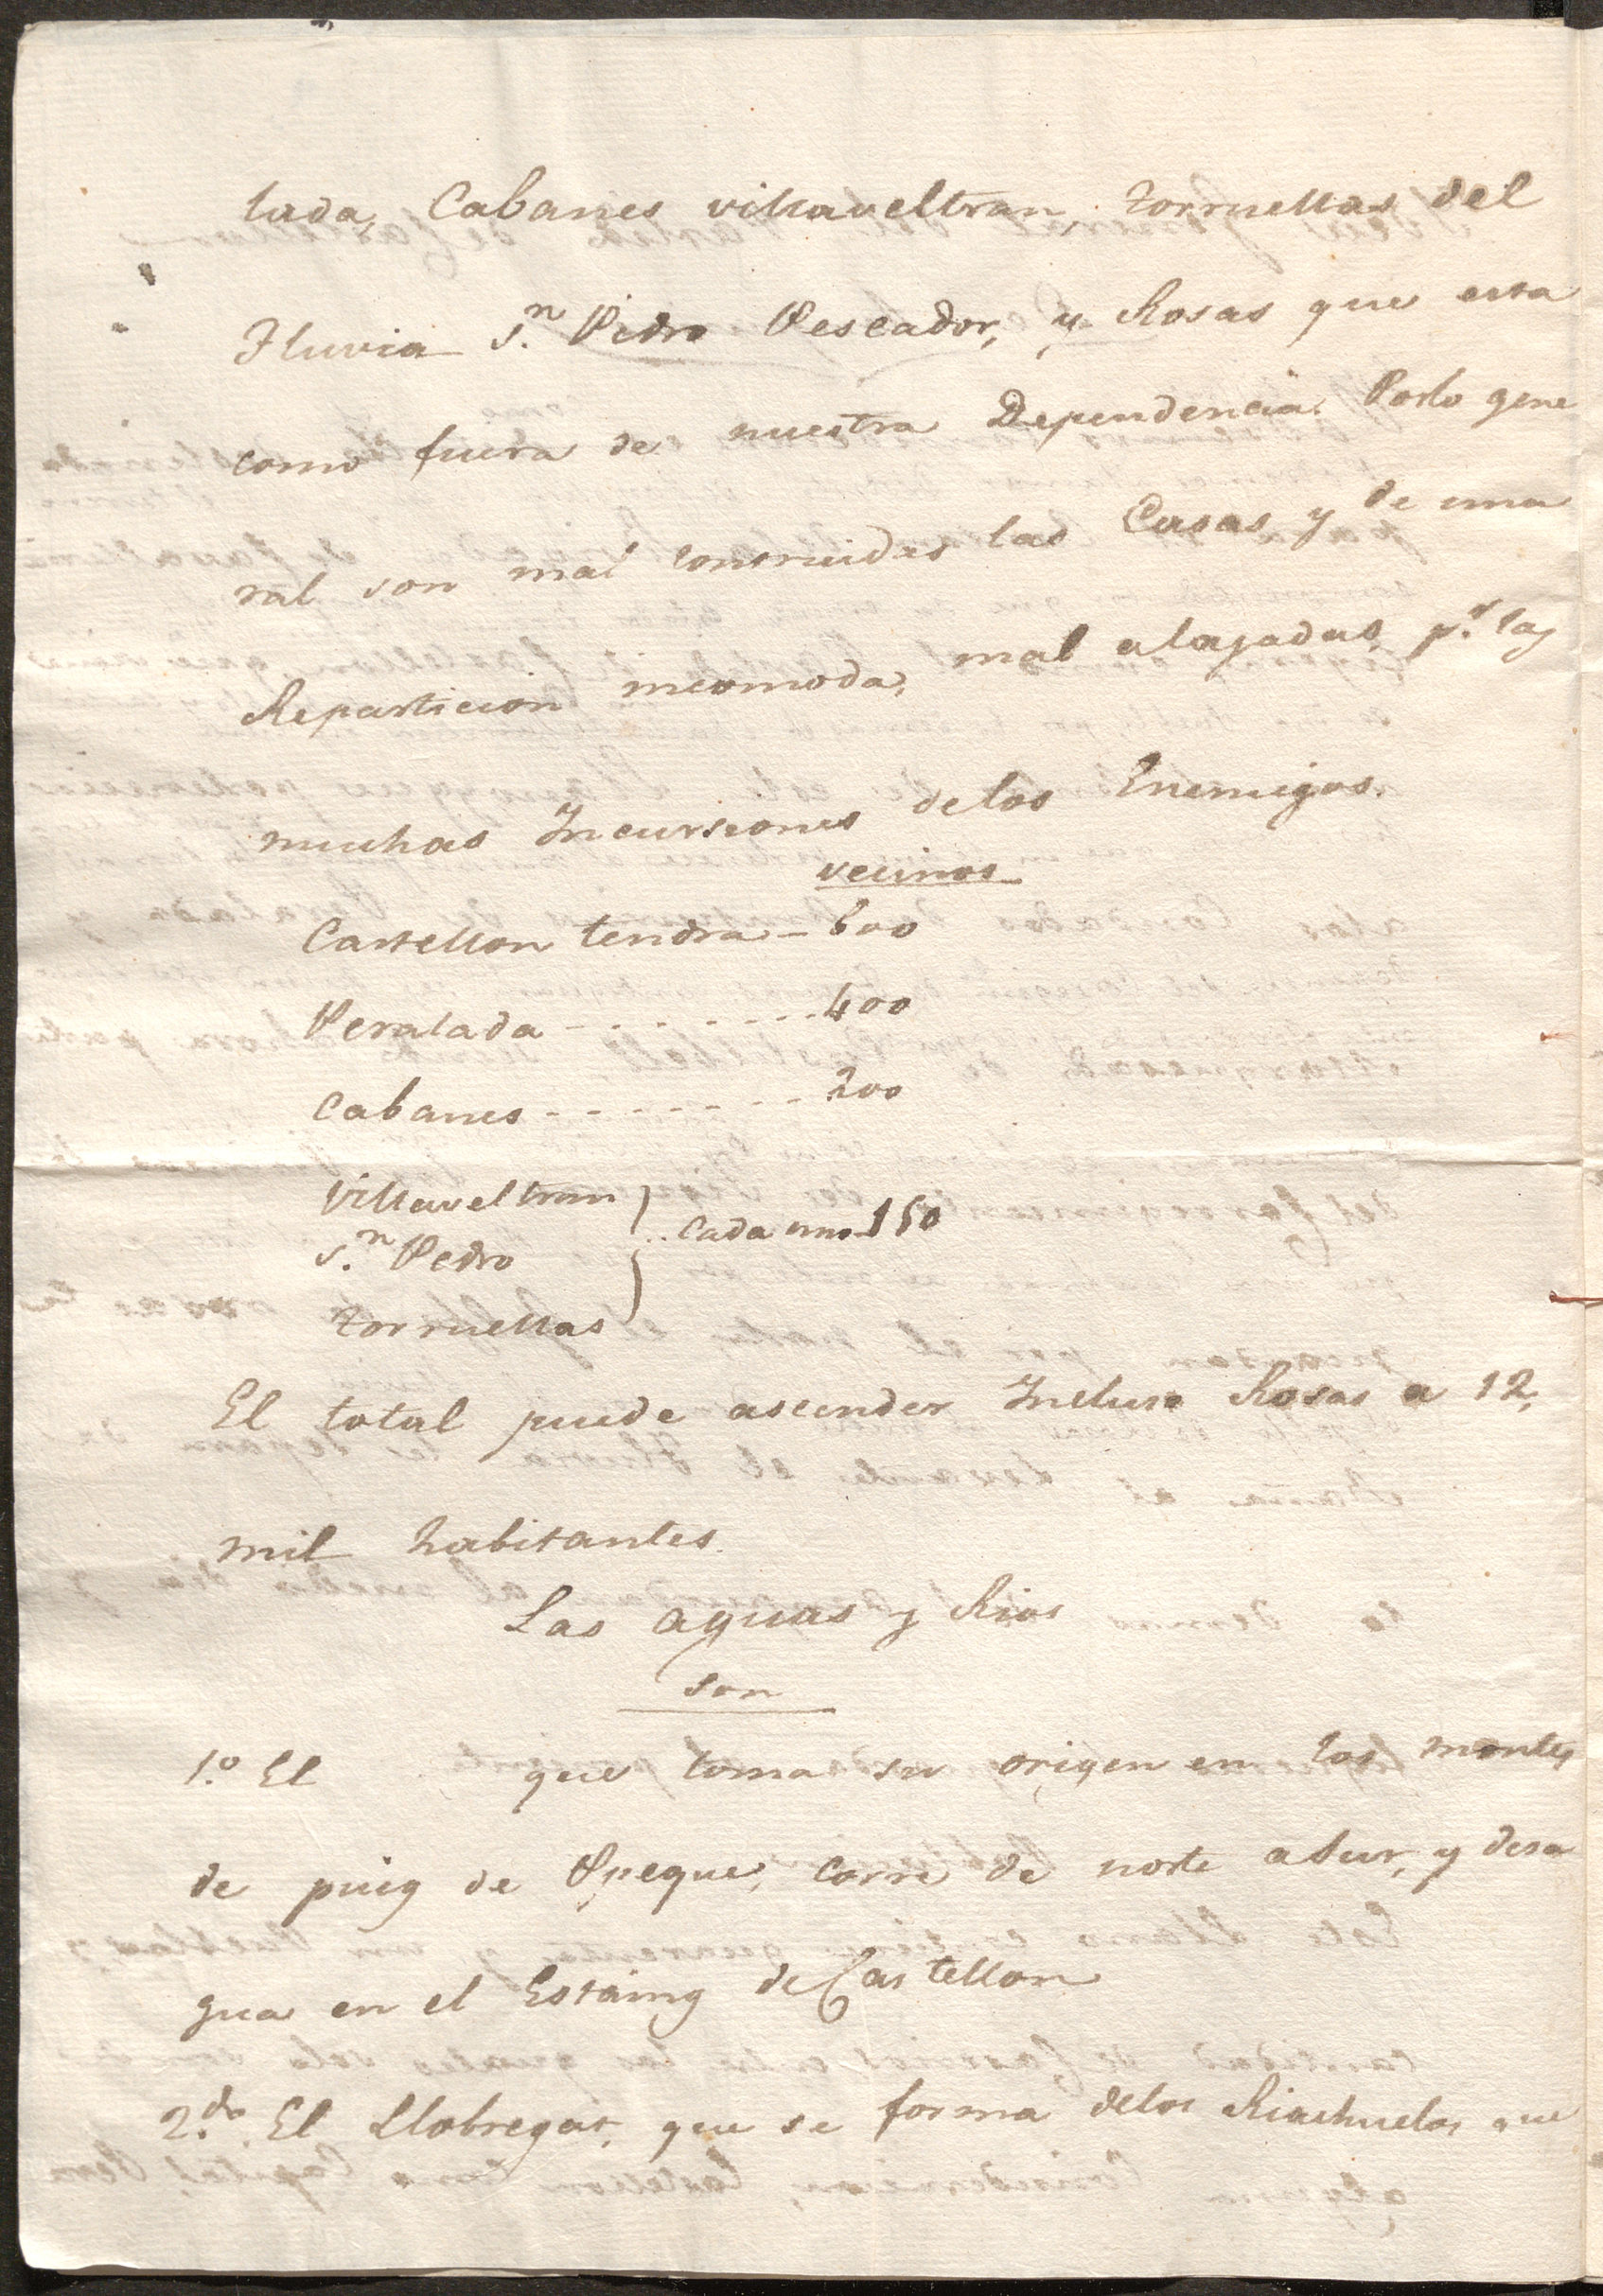 lada, Cabanes villaveltran, torruellas del
Fluvia S.n Pedro Pescador, y Rosas que esta
como fuera de nuestra Dependencia. Porlo gene
ral son mal construidas las Casas, y de una
Reparticion incomoda, mal alajadas, p.r las
muchas Incursiones delos Enemigos.
vecinos
Castellon tendra - 600
Peralada - - - - - - - - 400
Cabanes - - - - - - - - 200
Villaveltran
S.n Pedro } .. Cada uno 150
torruellas
El total puede ascender Incluso Rosas a 12,
mil habitantes.
Las aguas y Rios
son
1.o El que toma su origen en los montes
de puig de Opeque, corre de norte asur, y desa
gua en el Estaing de Castellon
2.do El Llobregat, que se forma delos Riachuelos que